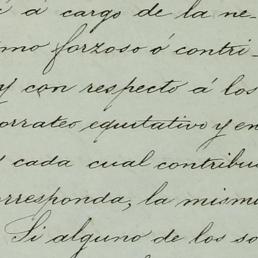 á cargo de la ne-
mo forzoso ó contri-
y con respecto á los
orrateo equitativo y en
cada cual contribu
orresponda, la mism
Si alguno de los so